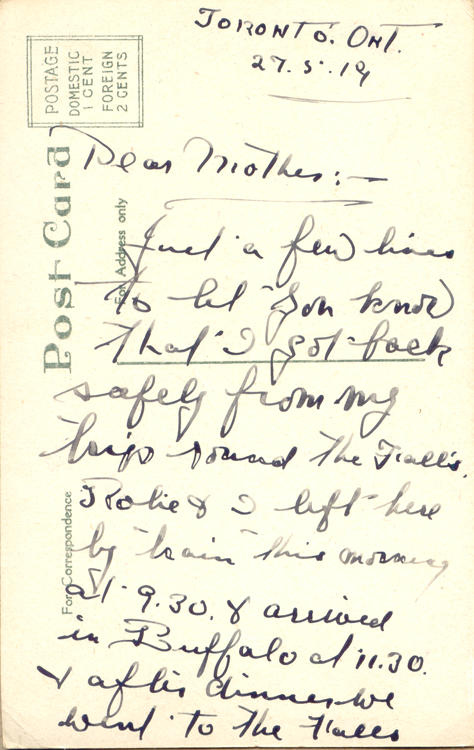 TORONTO. ONT.
27.5.19
POSTAGE
DOMESTIC
1 CENT
FOREIGN
2 CENTS
Post Card
For Address only
For Correspondence
Dear Mother:—
Just a few lines
to let you know
that I got back
safely from my
trip round the Falls.
Robie & I left here
by train this morning
at 9.30. & arrived
in Buffalo at 11.30.
& after dinner we
went to the Falls